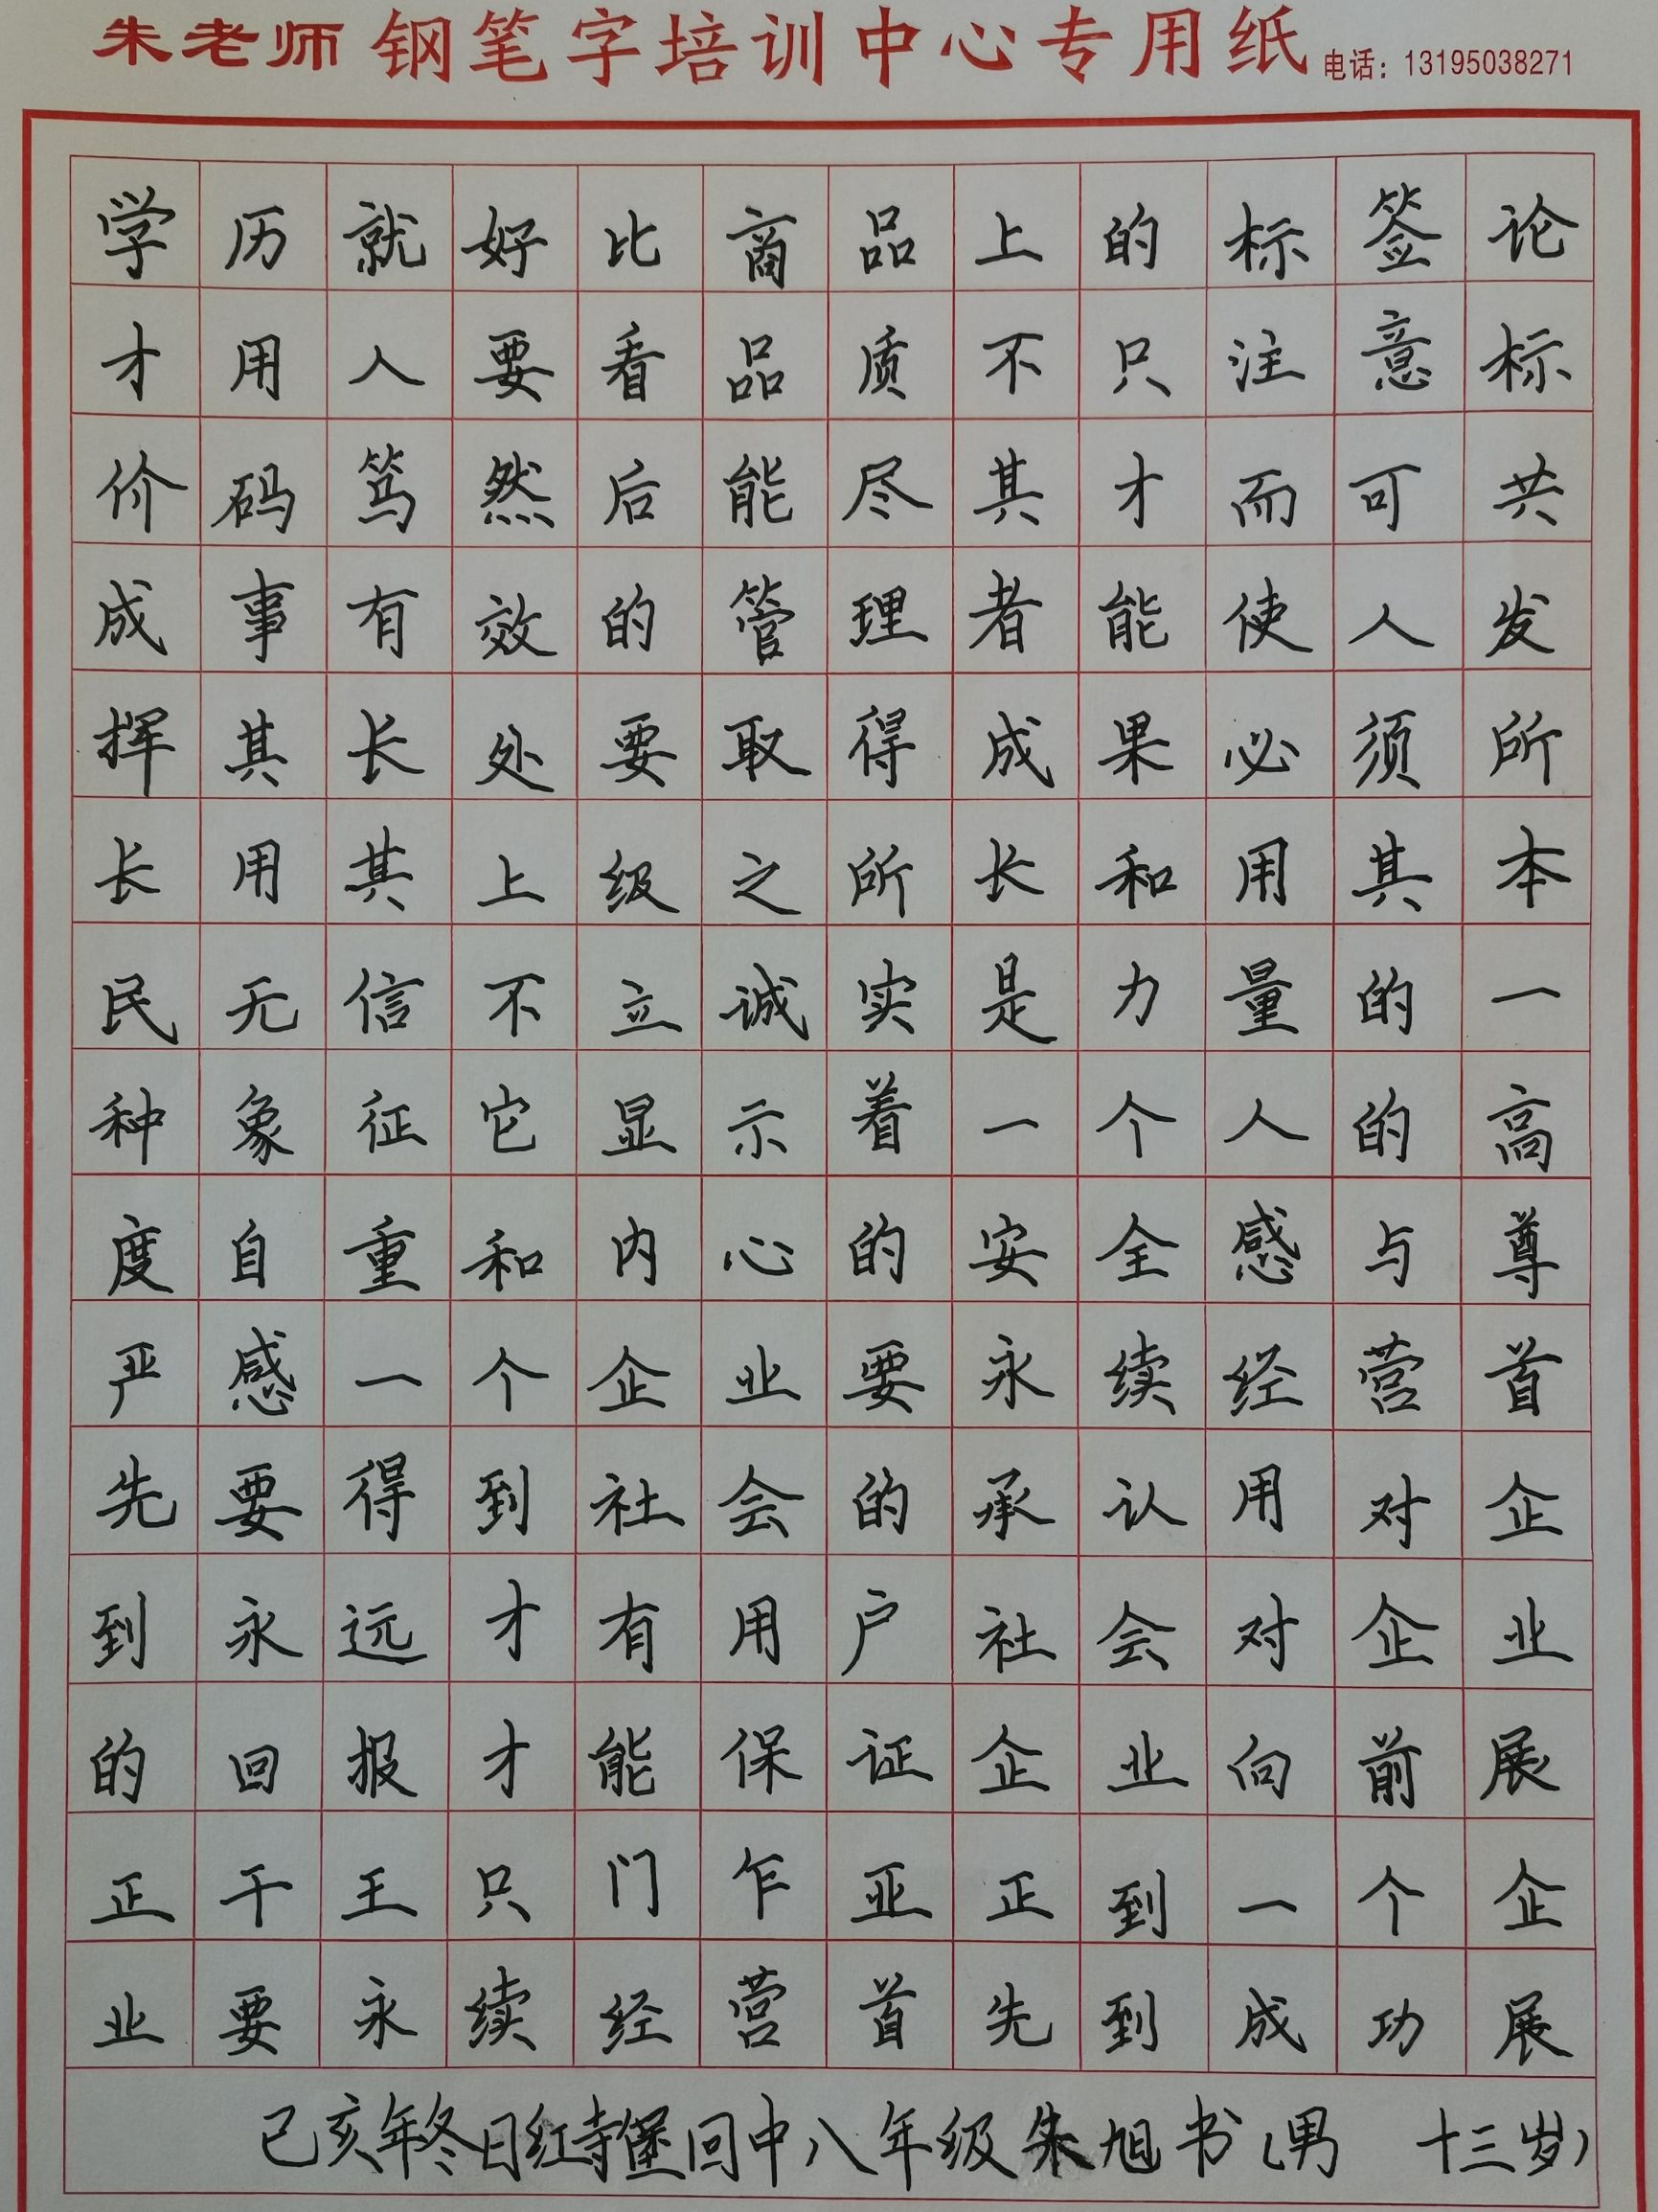 朱老师 钢笔字培训中心专用纸 电话：13195038271
学历就好比商品上的标签论
才用人要看品质不只注意标
价码笃然后能尽其才而可共
成事有效的管理者能使人发
挥其长处要取得成果必须所
长用其上级之所长和用其本
民无信不立诚实是力量的一
种象征它显示着一个人的高
度自重和内心的安全感与尊
严感一个企业要永续经营首
先要得到社会的承认用对企
到永远才有用户社会对企业
的回报才能保证企业向前展
正干王只门乍亚正到一个企
业要永续经营首先到成功展
己亥年冬日红寺堡回中八年级朱旭书(男 十三岁)